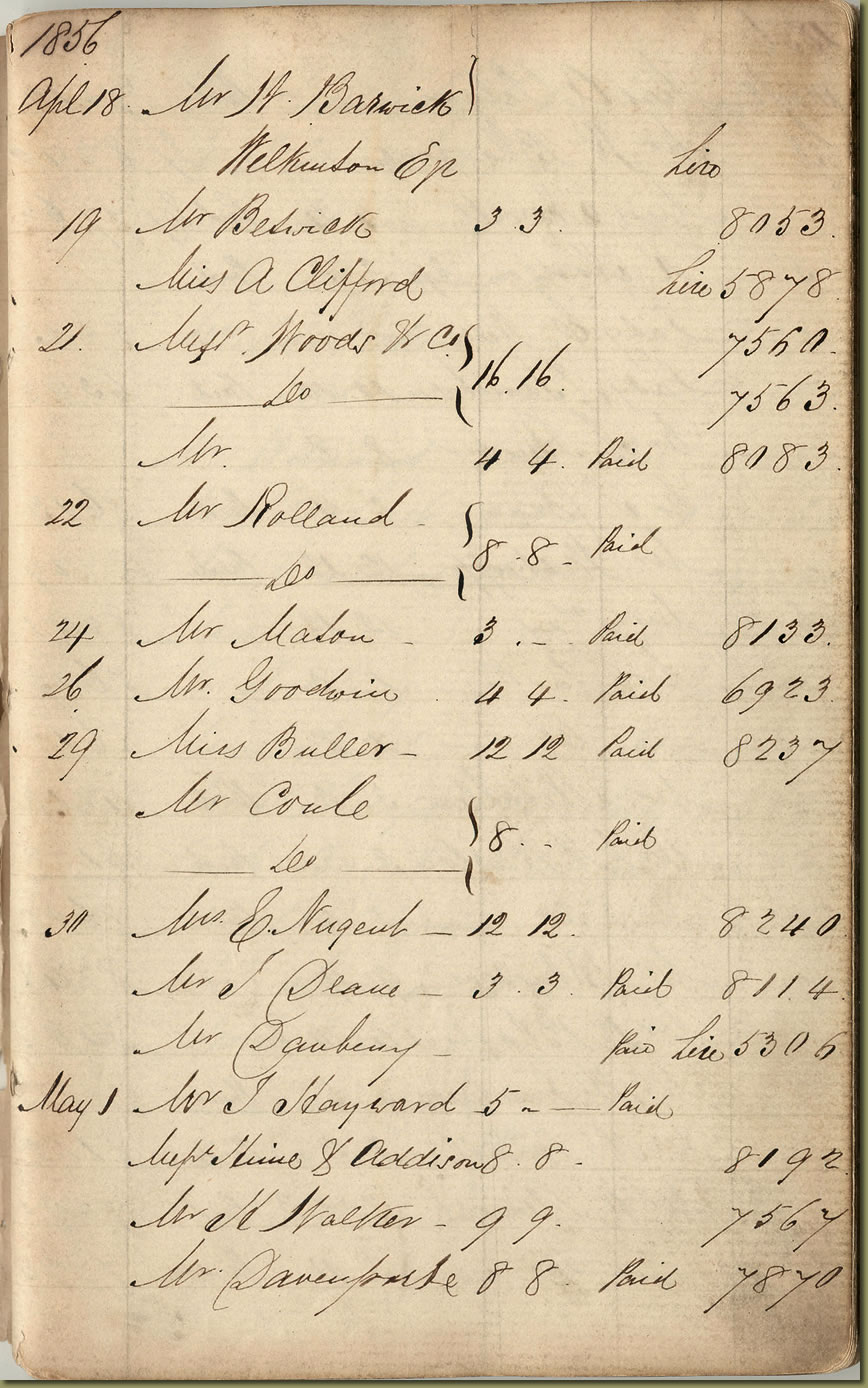 1856
Apl 18 Mr W. Barwick
Wilkinson Hire
19 Mr Beswick 3 . 3 . 8053.
Miss A Clifford Hire 5878
21. Messrs. Woods & Co 16.16. 7560.
—— Do —— 7563.
Mr. 4 4. Paid 8083.
22 Mr Rolland - 8 . 8 - Paid
—— Do ——
24 Mr Maton - 3 . - Paid 8133.
26 Mr. Goodwin . 4 4. Paid 6923
29 Miss Buller - 12 12 Paid 8237
Mr Coule 8 . - Paid
—— Do ——
30 Mrs. E. Nugent — 12 12. 8240
Mr J Deane — 3 . 3 . Paid 8114.
Mr Daubeny - Paid Hire 5306
May 1 Mr J Hayward 5 - — Paid
Messrs Hime & Addison 8 . 8 - 8192.
Mr H Walker - 9 9. 7567
Mr. Davenporte 8 8 . Paid 7870